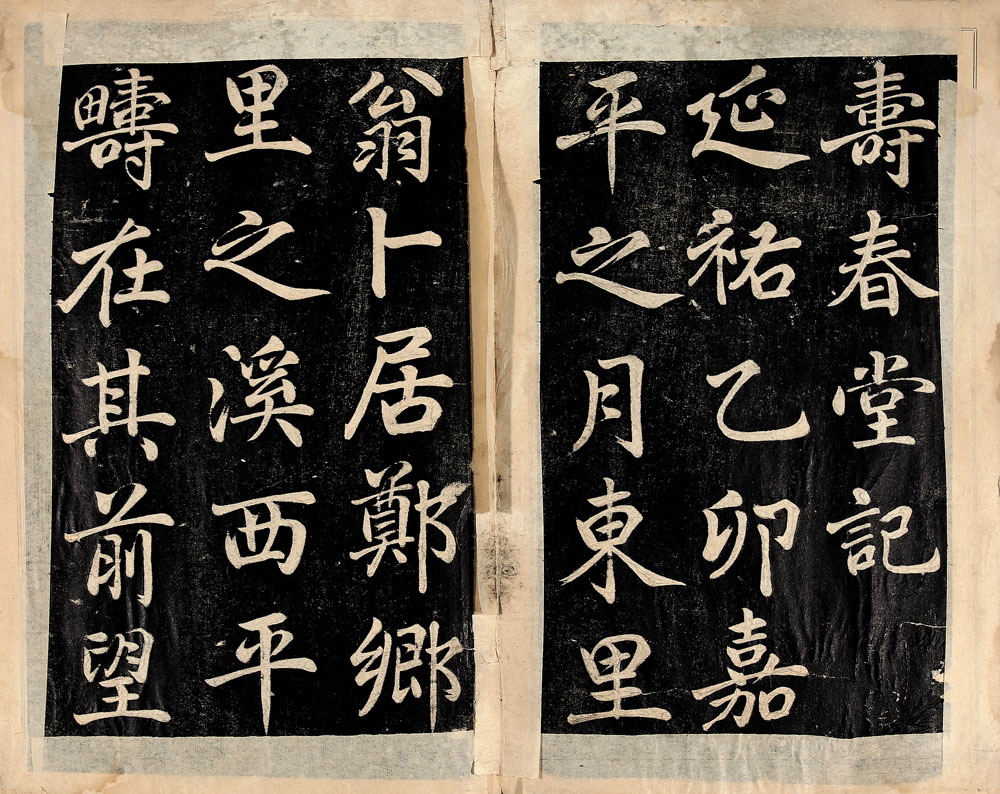 壽春堂記
延祐乙卯嘉
平之月東里
翁卜居鄭鄉
里之溪西平
疇在其前望